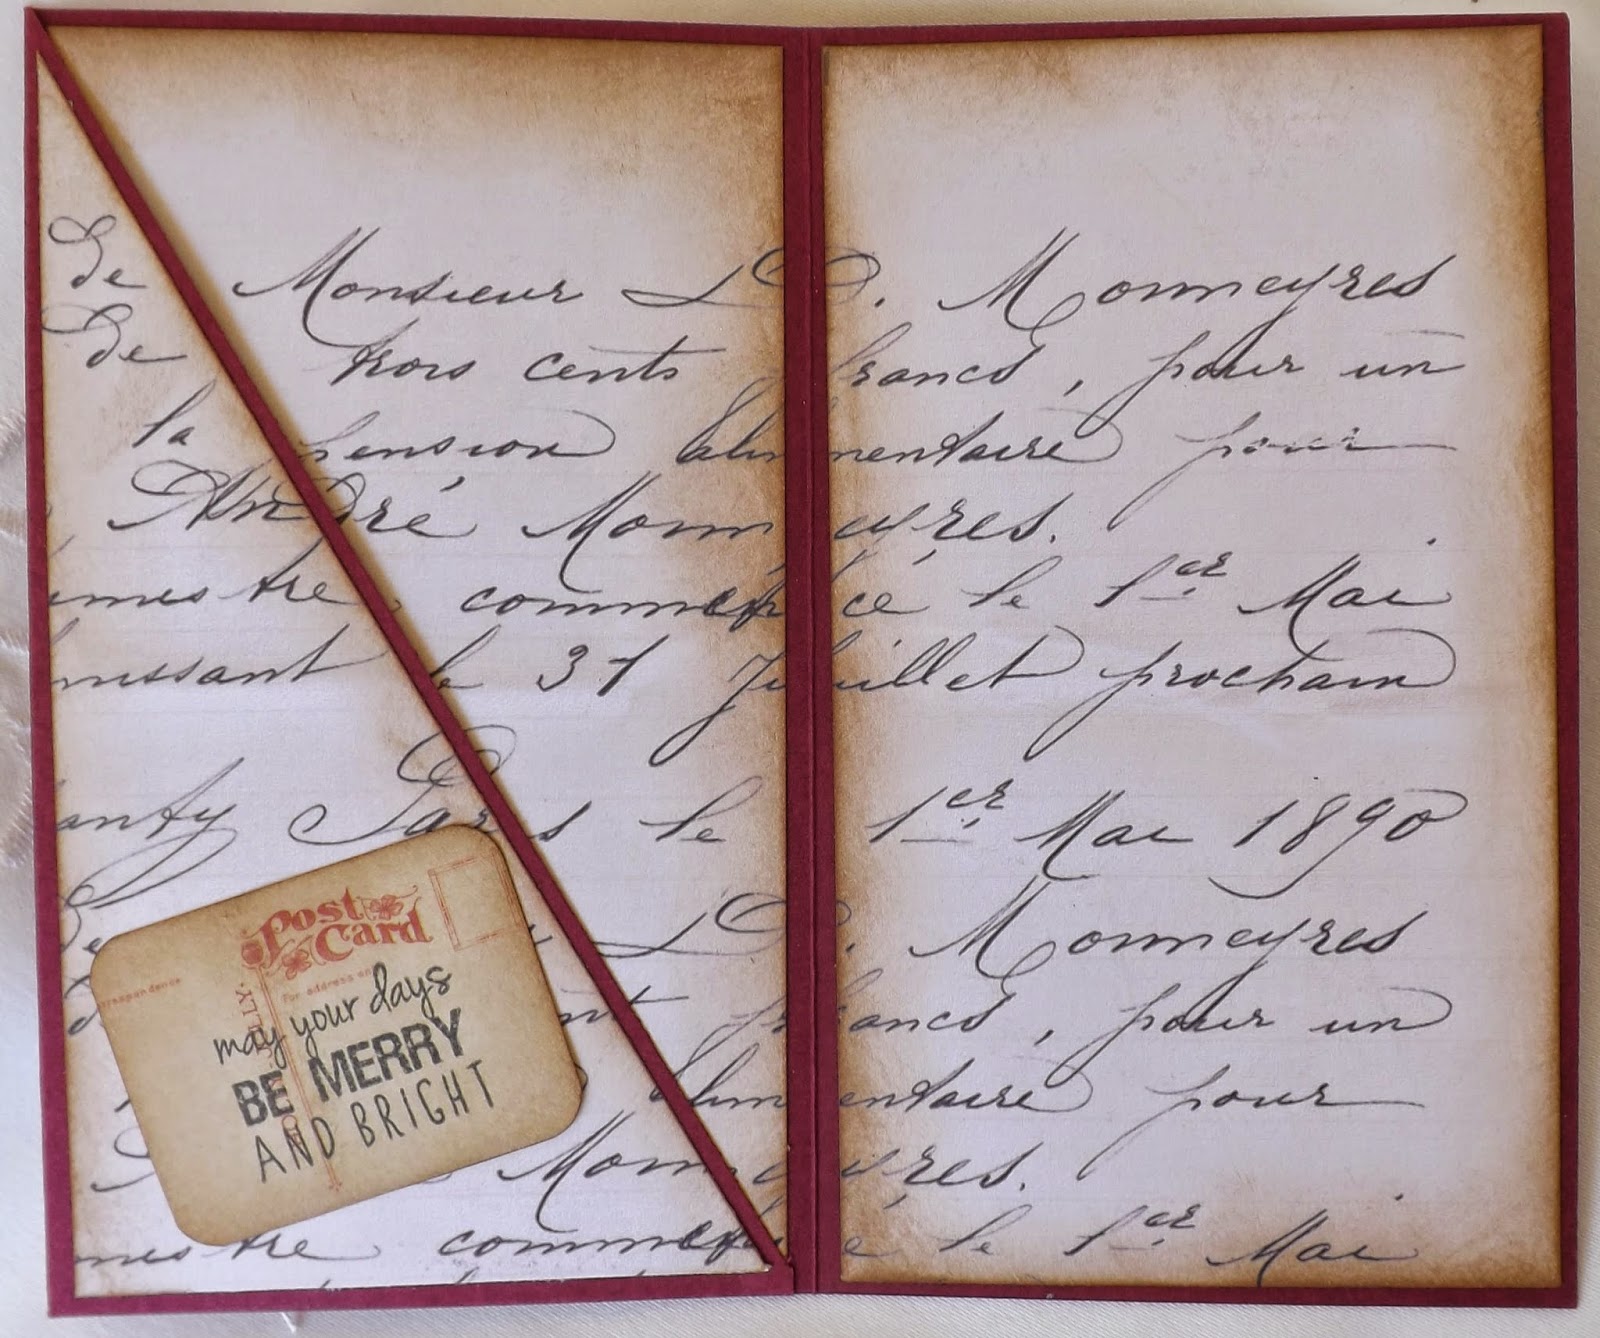 de Monsieur D. Monneyres
De trois cents francs, pour un
la pension alimentaire pour
André Monneyres.
mestre, commencé le 1er Mai
finissant le 31 Juillet prochain
Paris le 1er Mai 1890
De D. Monneyres
francs, pour un
alimentaire pour
Monneyres.
mestre commencé le 1er Mai
Post
Card
For address on
may your days
BE MERRY
AND BRIGHT